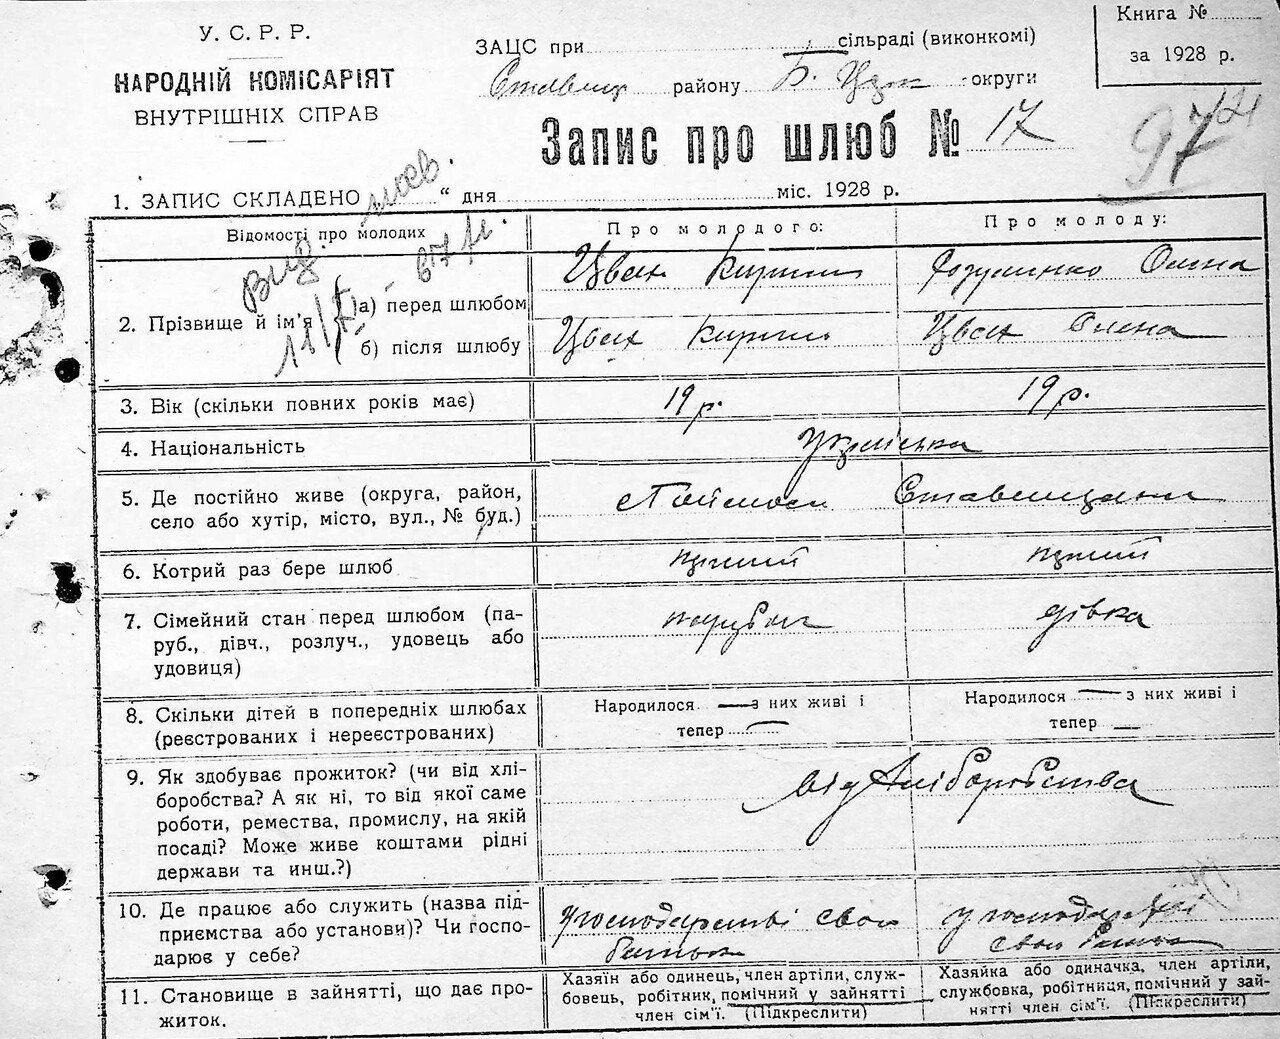 У. С. Р. Р.
НАРОДНІЙ КОМІСАРІЯТ
ВНУТРІШНІХ СПРАВ
Книга №
за 1928 р.
ЗАЦС при сільраді (виконкомі)
району Б. Церк округи
Запис про шлюб № 17
97
1. ЗАПИС СКЛАДЕНО „ “ дня міс. 1928 р.
Відомості про молодих
Про молодого:
Про молоду:
2. Прізвище й ім'я
а) перед шлюбом
Цвях Кирило
Олена
б) після шлюбу
Цвях Кирило
Цвях Олена
3. Вік (скільки повних років має)
19 р.
19 р.
4. Національність
Українська
5. Де постійно живе (округа, район,
село або хутір, місто, вул., № буд.)
Ставищани
6. Котрий раз бере шлюб
перший
перший
7. Сімейний стан перед шлюбом (па-
руб., дівч., розлуч., удовець або
удовиця)
парубок
дівка
8. Скільки дітей в попередніх шлюбах
(реєстрованих і нереєстрованих)
Народилося — з них живі і
тепер —
Народилося — з них живі і
тепер —
9. Як здобуває прожиток? (чи від хлі-
боробства? А як ні, то від якої саме
роботи, ремества, промислу, на якій
посаді? Може живе коштами рідні
держави та инш.?)
від хліборобства
10. Де працює або служить (назва під-
приємства або установи)? Чи госпо-
дарює у себе?
у господарстві свого
батька
у господарстві
свого батька
11. Становище в зайнятті, що дає про-
житок.
Хазяїн або одинець, член артілі, служ-
бовець, робітник, помічний у зайнятті
член сім'ї. (Підкреслити)
Хазяйка або одиначка, член артіли,
службовка, робітниця, помічний у зай-
нятті член сім'ї. (Підкреслити)